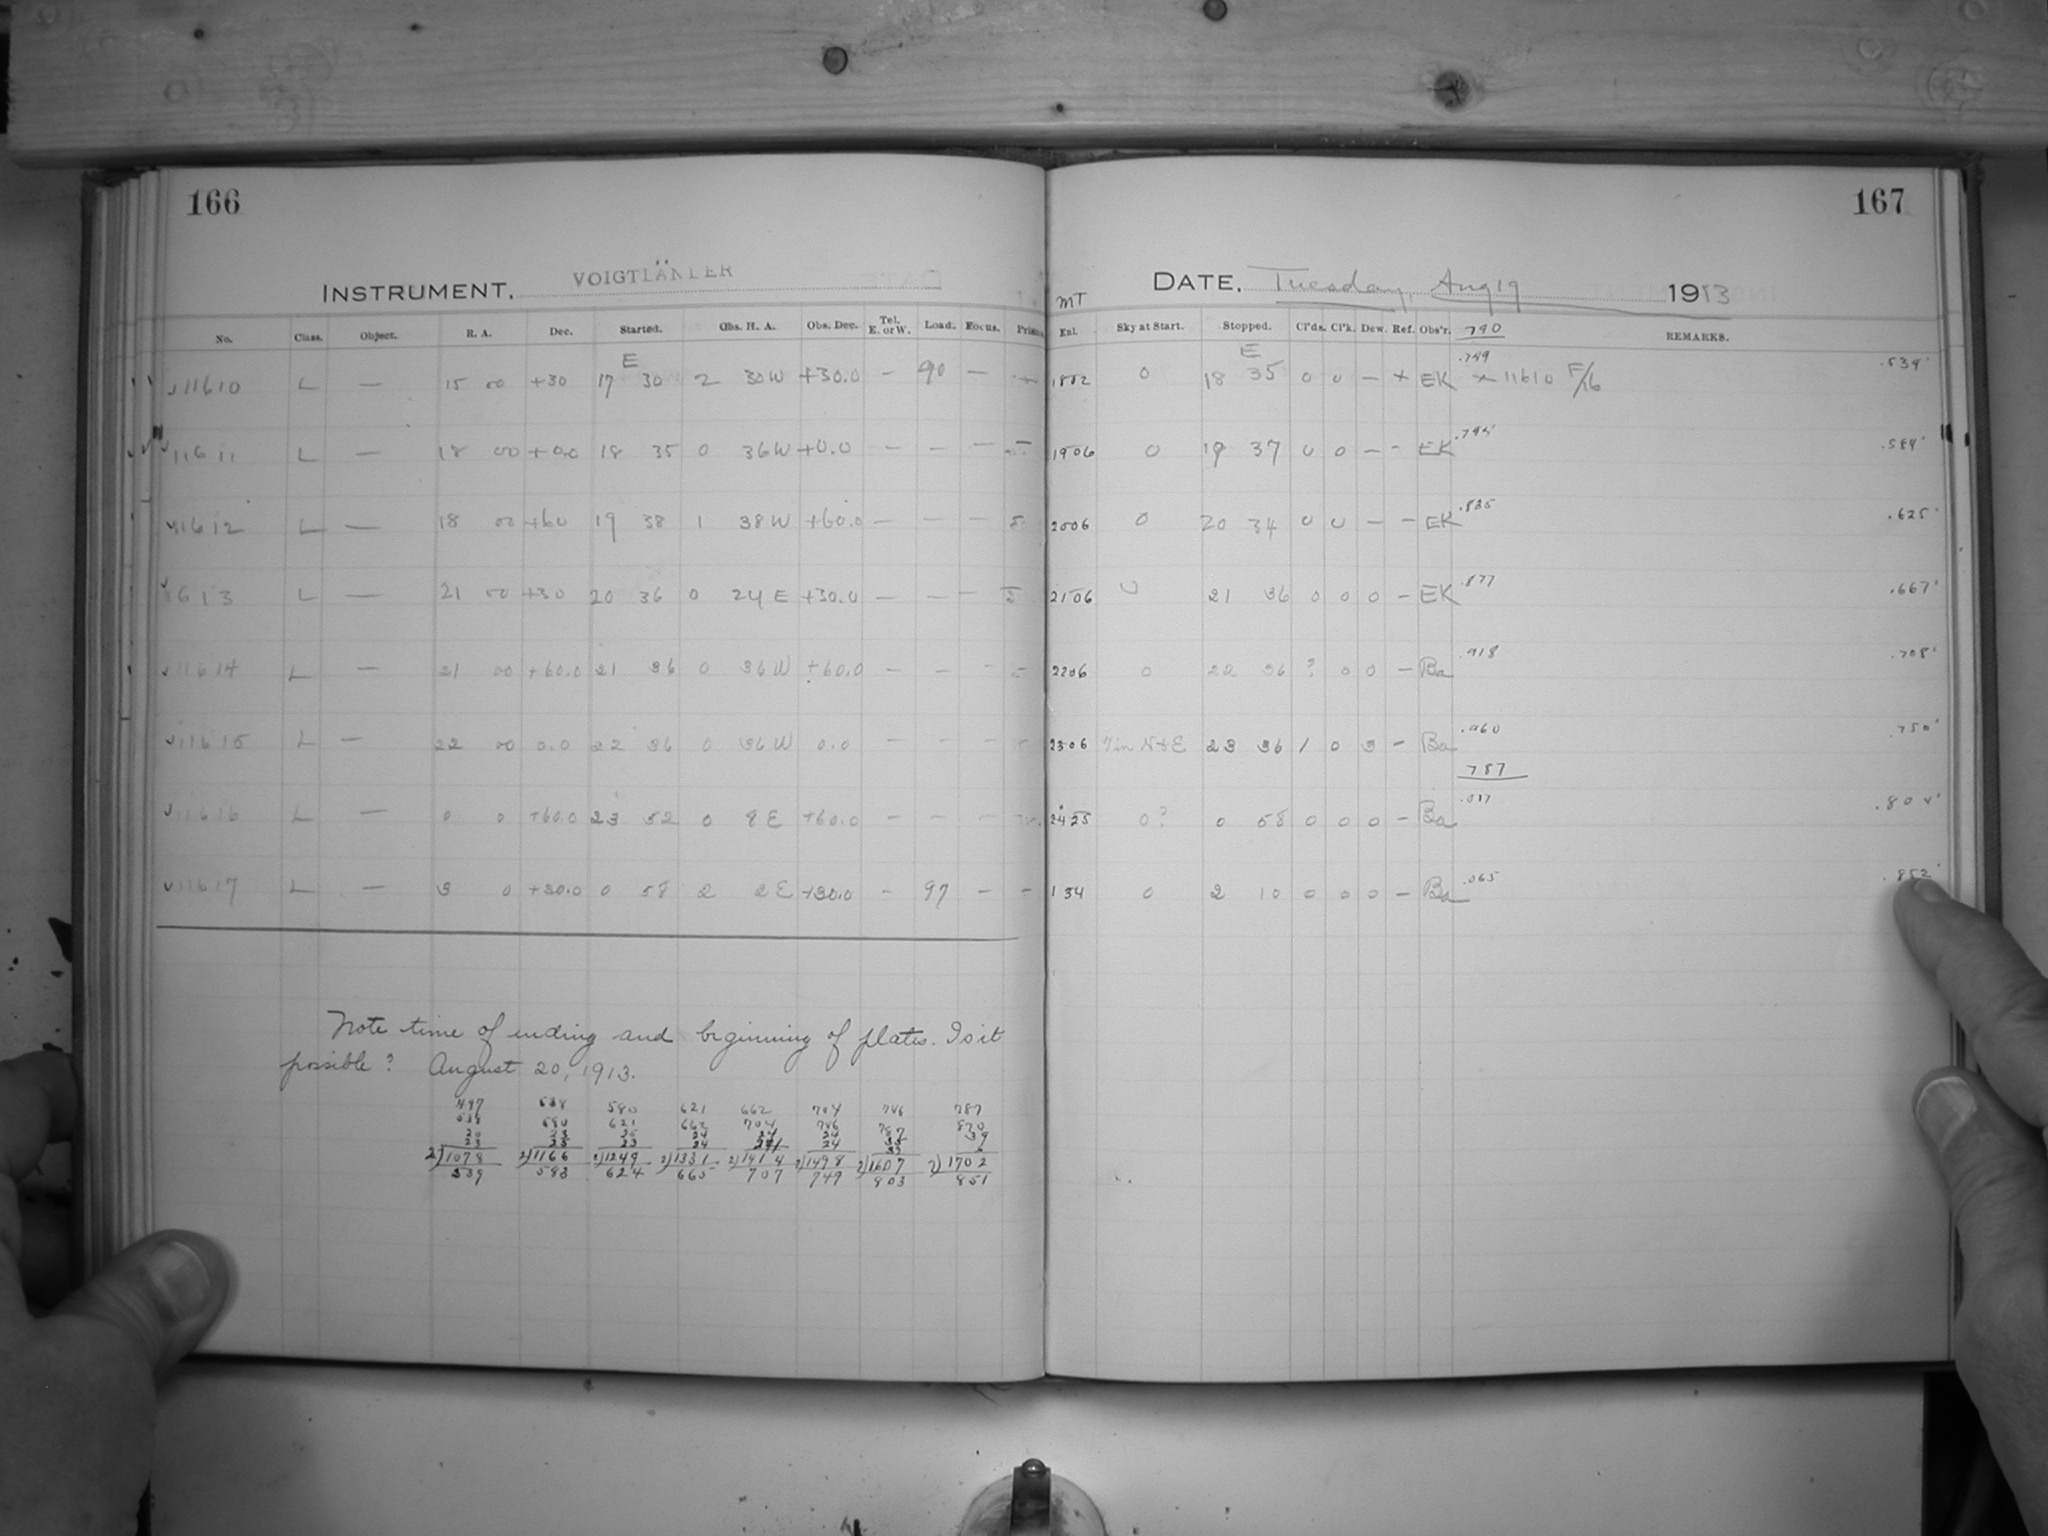 166
167
INSTRUMENT. VOIGTLÄNDER
DATE. Tuesday, Aug 19 1913
No. Class. Object. R. A. Dec. Started. Obs. H. A. Obs. Dec. Tel. E. or W. Load. Focus. Prism.
MT Exl. Sky at Start. Stopped. Cl'ds. Cl'k. Dew. Ref. Obs'r. 790 REMARKS.
E E
11610 L — 15 00 +30 17 30 2 30W +30.0 — 90 — 0 18 35 0 0 — x EK .749 x 11610 F/16 .539
11611 L — 18 00 +0.0 18 35 0 36W +0.0 — — — 1906 0 19 37 0 0 — - EK .584
11612 L — 18 00 +60 19 38 1 38W +60.0 — — — 2006 0 20 34 0 0 — — EK .835 .625
613 L — 21 00 +30 20 36 0 24 E +30.0 — — — 2106 0 21 36 0 0 0 - EK .877 .667
11614 L — 21 00 +60.0 21 36 0 36W +60.0 — — — 2206 0 22 36 ? 0 0 — Ba .918 .708
11615 L — 22 00 0.0 22 36 0 36W 0.0 — — — 2306 in N+E 23 36 1 0 3 - Ba .960 .750
787
11616 L — 0 0 +60.0 23 52 0 8 E +60.0 — — — 2425 0? 0 58 0 0 0 — Ba .017
11617 L — 3 0 +30.0 0 58 2 2 E +30.0 - 97 - - 1 34 0 2 10 0 0 0 — Ba .065 .852
Note time of ending and beginning of plates. Is it
possible? August 20, 1913.
497 538 580 621 662 704 746 787
538 580 621 662 704 746 787 870
20 23 25 24 24 24 39
23 25 23 24 24
2)1078 2)1166 2)1249 2)1331 2)1414 2)1498 2)1607 2)1702
539 583 624 665 707 749 803 851